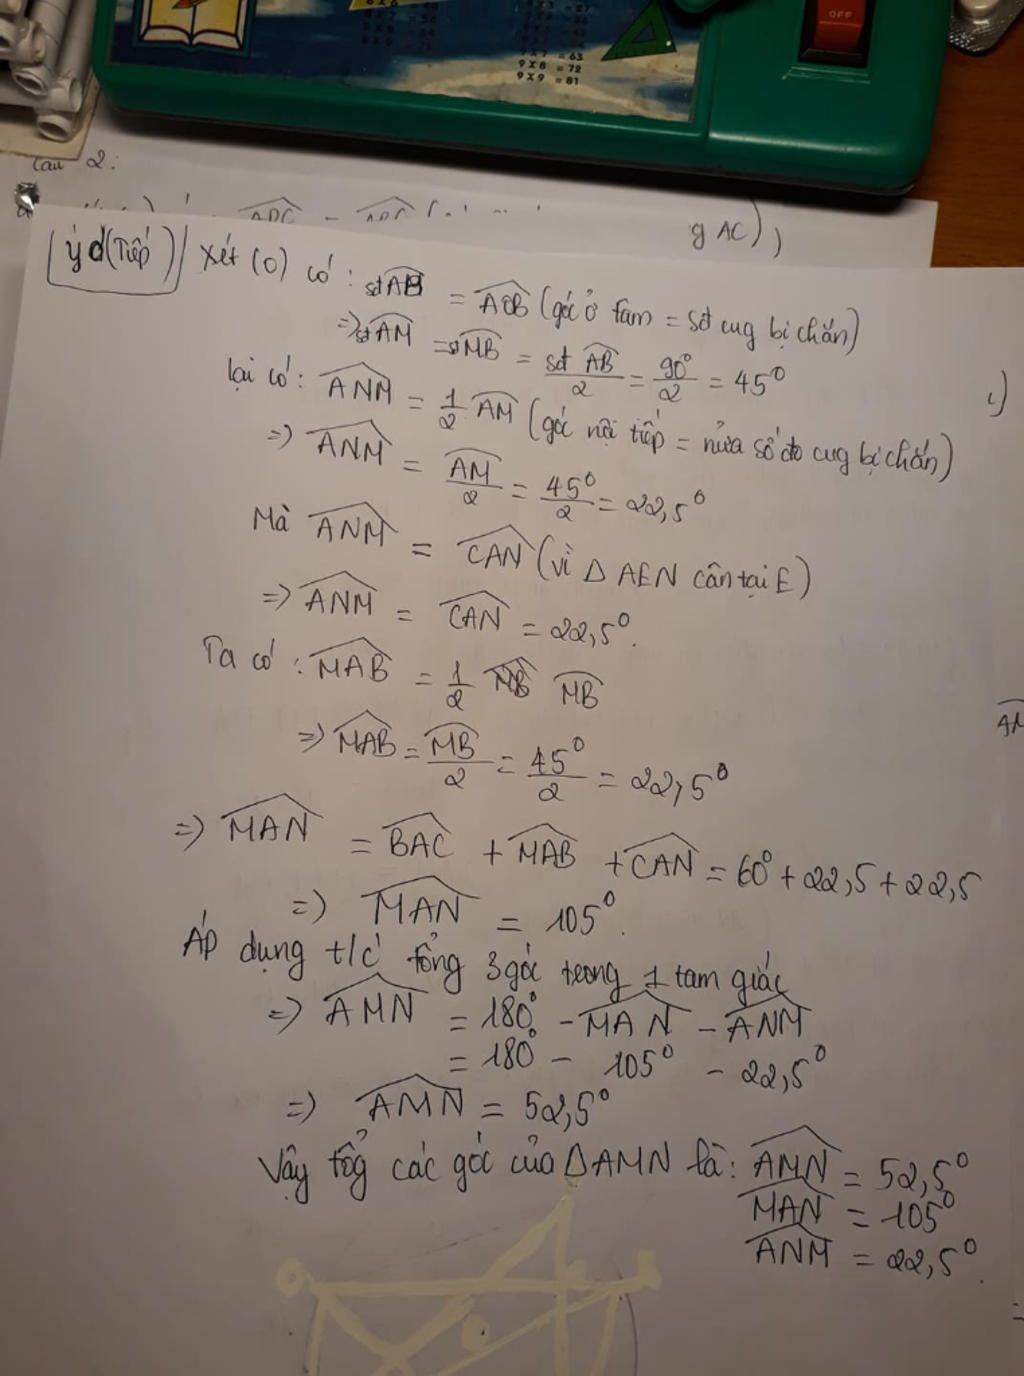 OFF
= 63
9 X 8 = 72
9 X 9 = 81
Câu 2:
g AC) )
ý d (Tiếp) Xét (O) có: sđ AB = AOB (góc ở tâm = sđ cug bị chắn)
=> sđ AM = sđ MB = sđ AB / 2 = 90° / 2 = 45°
lại có: ANM = 1/2 AM (góc nội tiếp = nửa số đo cug bị chắn)
=> ANM = AM / 2 = 45° / 2 = 22,5°
Mà ANM = CAN (vì Δ AEN cân tại E)
=> ANM = CAN = 22,5°.
Ta có: MAB = 1/2 MB
=> MAB = MB / 2 = 45° / 2 = 22,5°
=> MAN = BAC + MAB + CAN = 60° + 22,5 + 22,5
=> MAN = 105°.
Áp dụng t/c tổng 3 góc trong 1 tam giác
=> AMN = 180° - MAN - ANM
= 180° - 105° - 22,5°
=> AMN = 52,5°
Vậy tổg các góc của Δ AMN là: AMN = 52,5°
MAN = 105°
ANM = 22,5°.